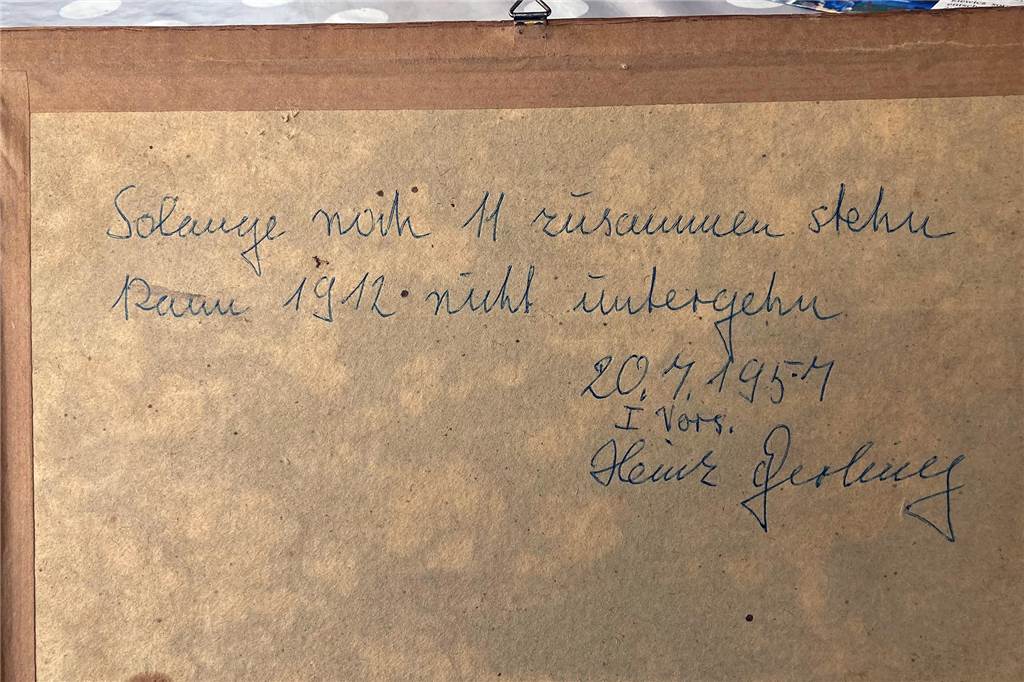 Solange noch 11 zusammen stehn
kann 1912 nicht untergehn
20.7.1957
I Vors.
Heinz